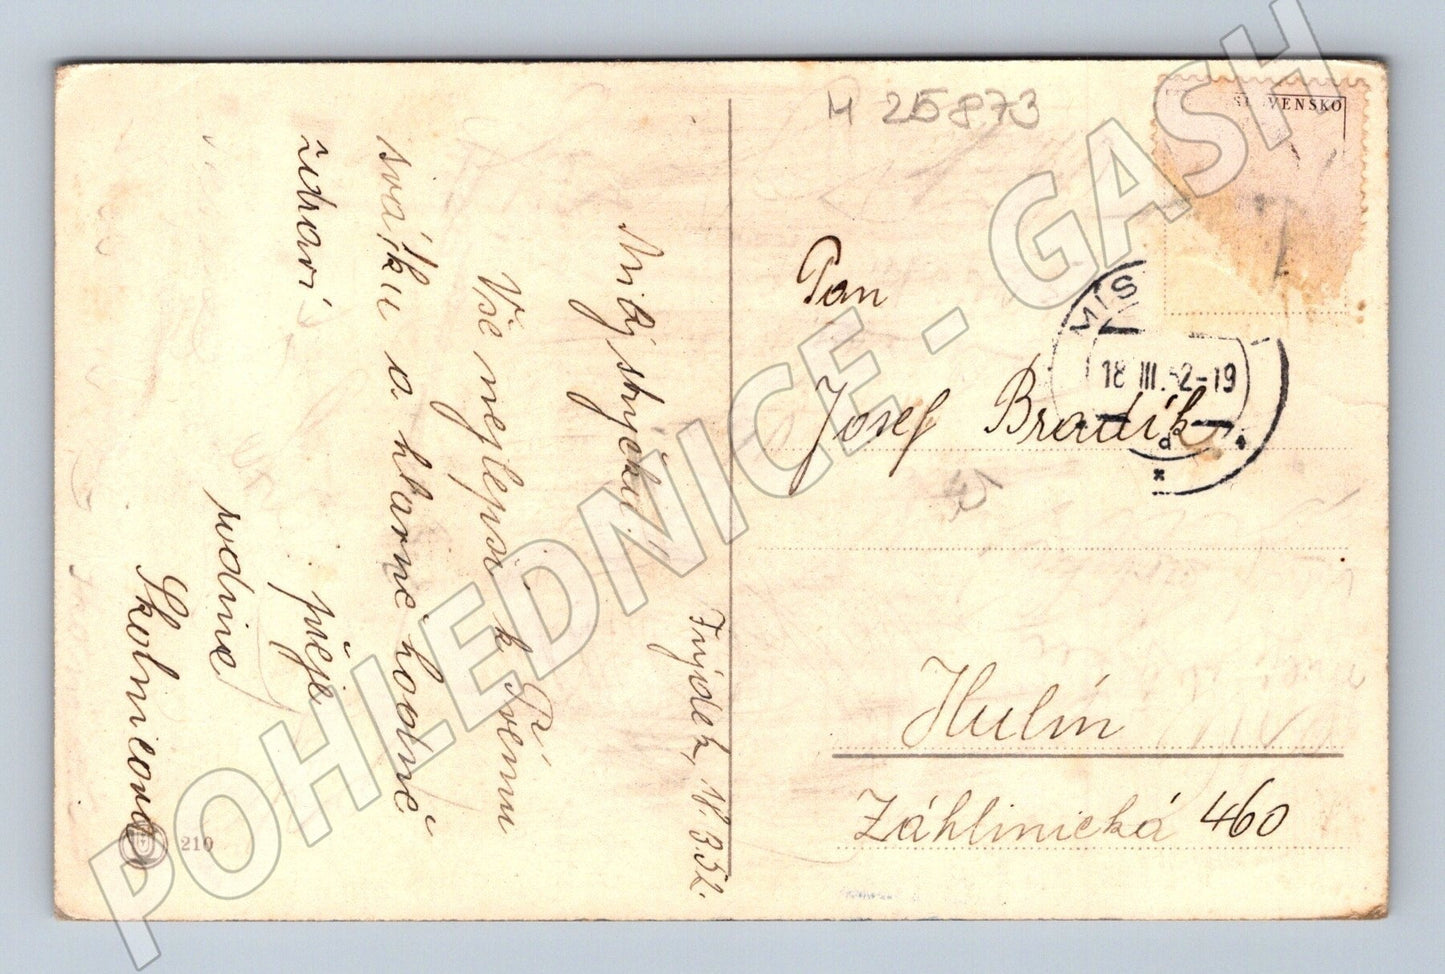 M 25873
SLOVENSKO
MÍS
18 III.52-19
Pan
Josef Bradík
Hulín
Záhlinická 460
Frýdek, 18.3.52.
Milý strýčku!
Vše nejlepší k Tvému
svátku a hlavně hodně
zdraví
přeje
rodina
Skolnicova
210
POHLEDNICE - GASH